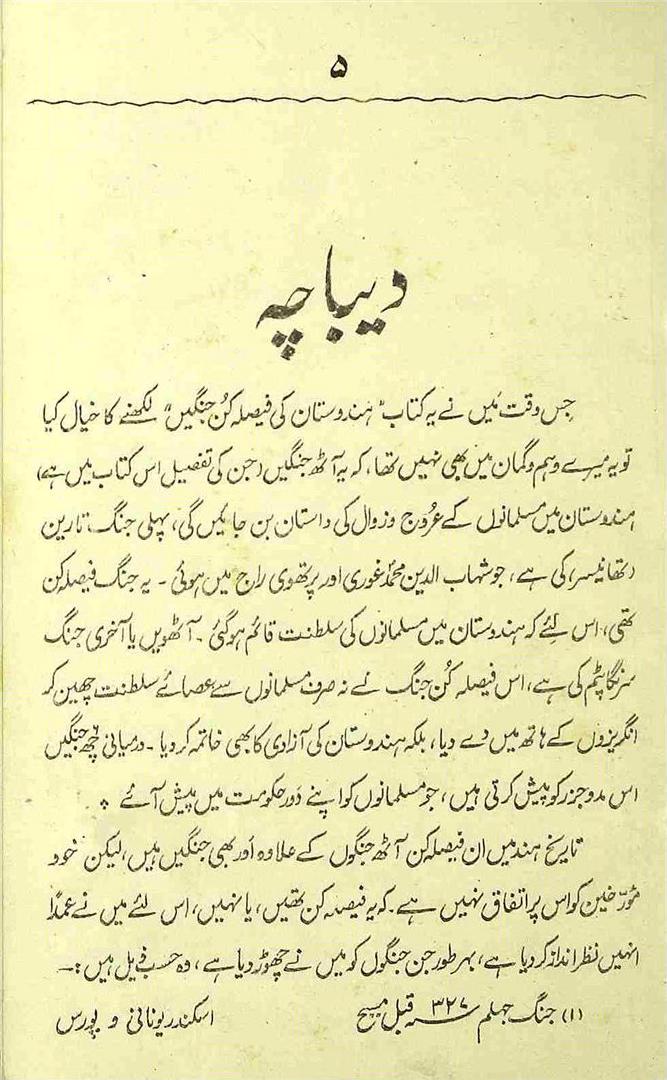 ۵
دیباچہ
جس وقت میں نے یہ کتاب "ہندوستان کی فیصلہ کن جنگیں" لکھنے کا خیال کیا
تو یہ میرے وہم و گمان میں بھی نہیں تھا، کہ یہ آٹھ جنگیں (جن کی تفصیل اس کتاب میں ہے)
ہندوستان میں مسلمانوں کے عروج و زوال کی داستان بن جائیں گی، پہلی جنگ تارین
(تھانیسر) کی ہے، جو شہاب الدین محمد غوری اور پرتھوی راج میں ہوئی ۔ یہ جنگ فیصلہ کن
تھی، اس لئے کہ ہندوستان میں مسلمانوں کی سلطنت قائم ہوگئی ۔ آٹھویں یا آخری جنگ
سرنگا پٹم کی ہے، اس فیصلہ کُن جنگ نے نہ صرف مسلمانوں سے عصائے سلطنت چھین کر
انگریزوں کے ہاتھ میں دے دیا، بلکہ ہندوستان کی آزادی کا بھی خاتمہ کر دیا ۔ درمیانی چھ جنگیں
اس مد و جزر کو پیش کرتی ہیں، جو مسلمانوں کو اپنے دَور حکومت میں پیش آئے ۔
تاریخ ہند میں ان فیصلہ کن آٹھ جنگوں کے علاوہ اَور بھی جنگیں ہیں، لیکن خود
مؤرّخین کو اس پر اتفاق نہیں ہے ۔ کہ یہ فیصلہ کن تھیں، یا نہیں، اس لئے میں نے عمداً
انہیں نظر انداز کر دیا ہے، بہر طور جن جنگوں کو میں نے چھوڑ دیا ہے، وہ حسب ذیل ہیں :۔
(۱) جنگ جہلم ۳۲۷ سنہ قبل مسیح اسکندر یونانی و پورس